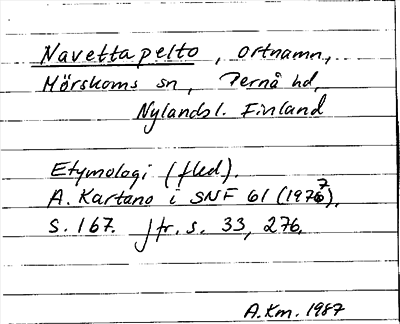 Navettapelto, ortnamn,
Mörskoms sn, Pernå hd,
Nylandsl. Finland
Etymologi (fled).
A. Kartano i SNF 61 (1977).
S. 167. Jfr. s. 33, 276.
A.Km. 1987